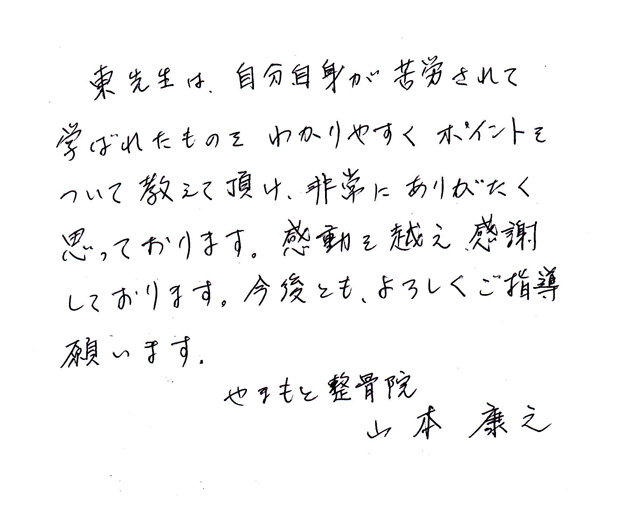 東先生は、自分自身が苦労されて
学ばれたものを わかりやすく ポイントを
ついて 教えて頂け、非常に ありがたく
思っております。感動を越え、感謝
しております。今後とも、よろしくご指導
願います。
やまもと整骨院
山本 康之